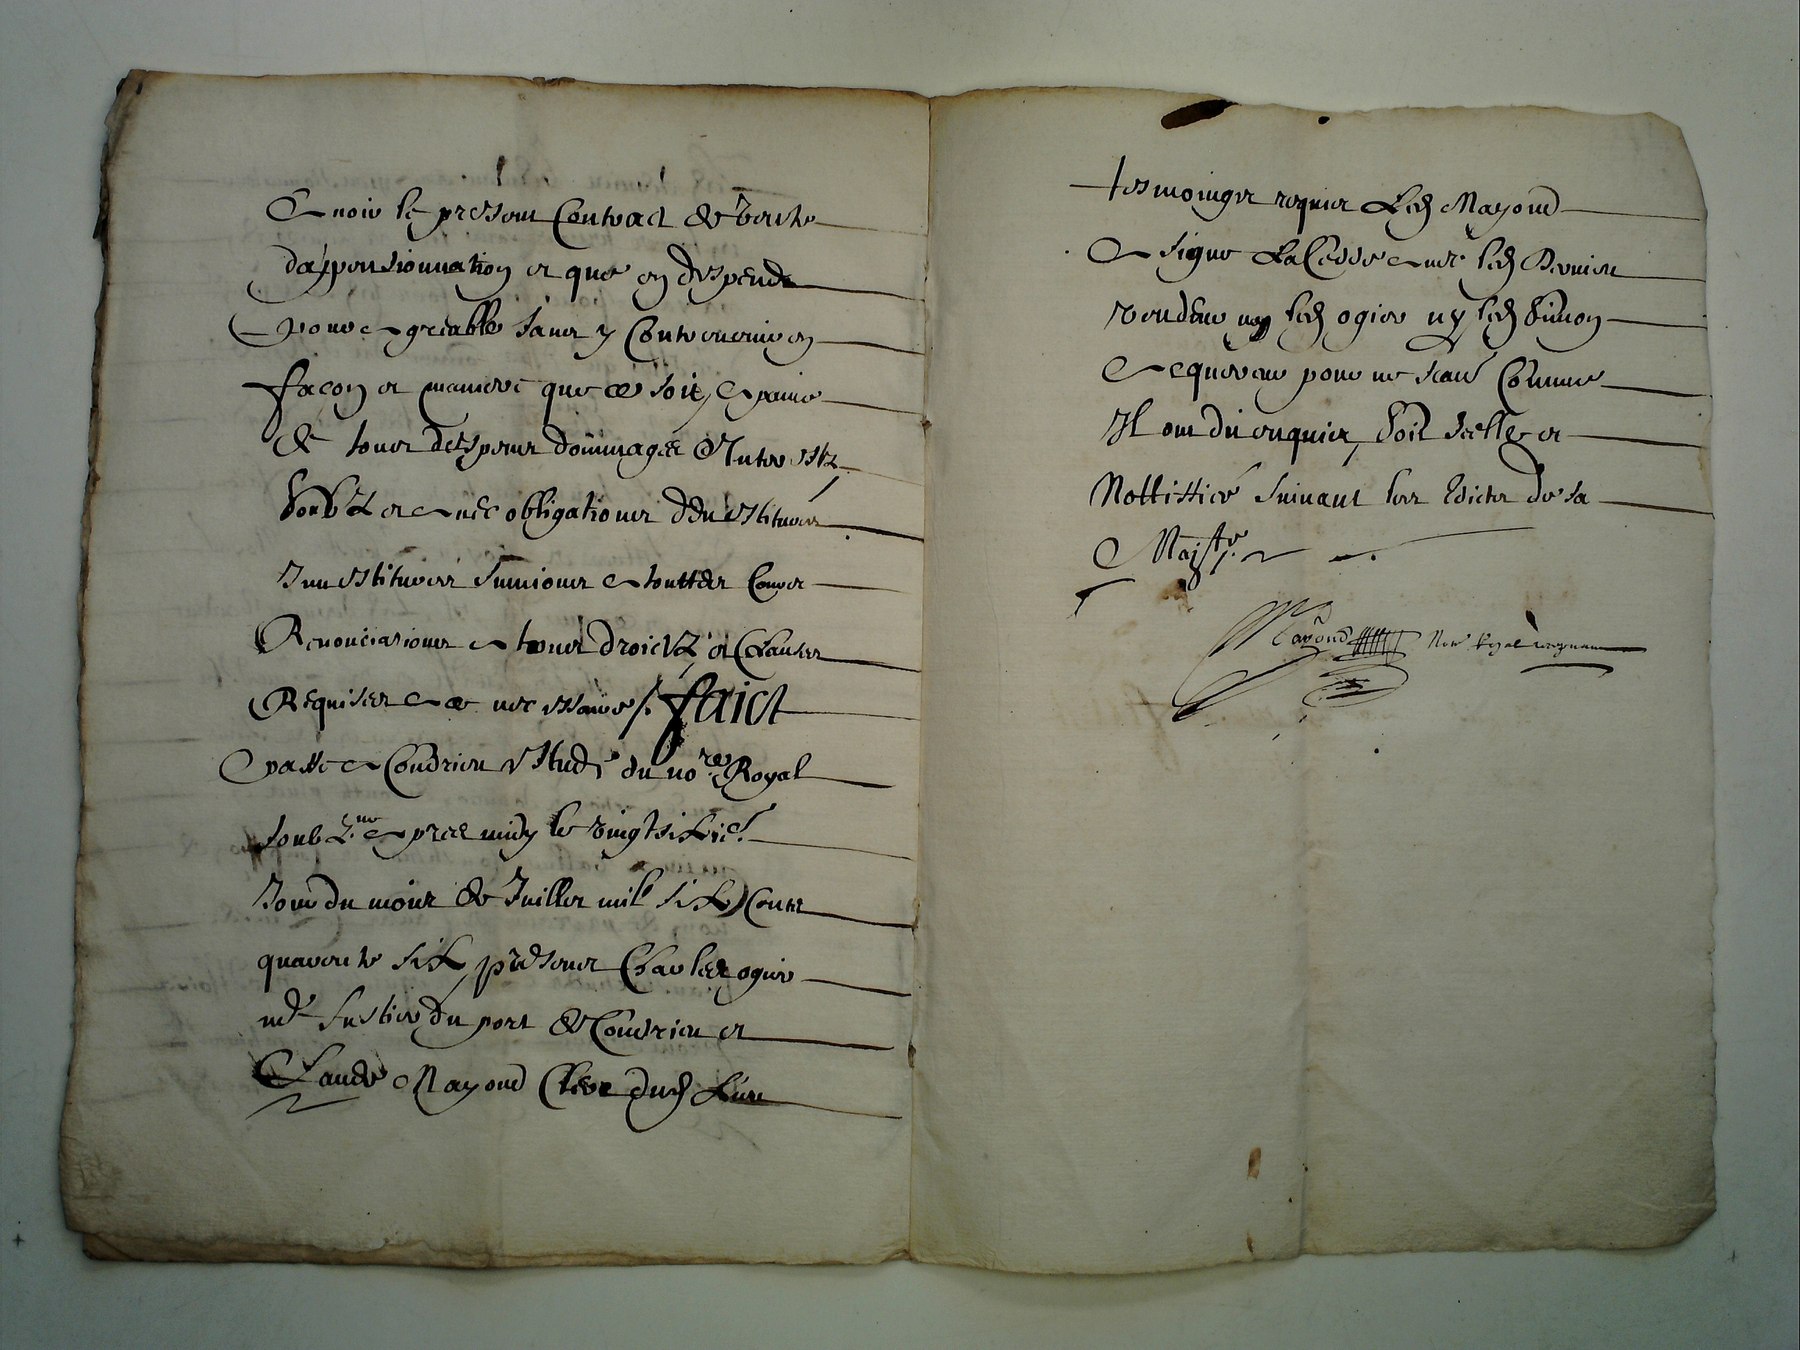 Avoir le present Contract de vente
dappensionnation et que en despend
pour agreable sans y Contrevenir en
façon et maniere que ce soit, a paine
de tous despens dommages Interestz
soubz et avec obligations
submissions a touttes Cours
Renonciations a tous droictz et Clauses
Requises a ce necessaires /. faict
passe a Condrieu estude du no.re Royal
soub.ne apres midy le vingt sixie.
Jour du mois de Juillet mil six Centz
quarente six presens Charles ogier
md du port de Condrieu et
Claude Mayoud Clerc dud
tesmoings requis Led Mayoud
a signe La Cedde avec led
vendeur non led ogier ny led Simon
acquereur pour ne scavoir Comme
Il ont dit enquis, soit scelle et
Nottiffié suivant les Edictz de sa
Majte.
Mayoud Nore Royal